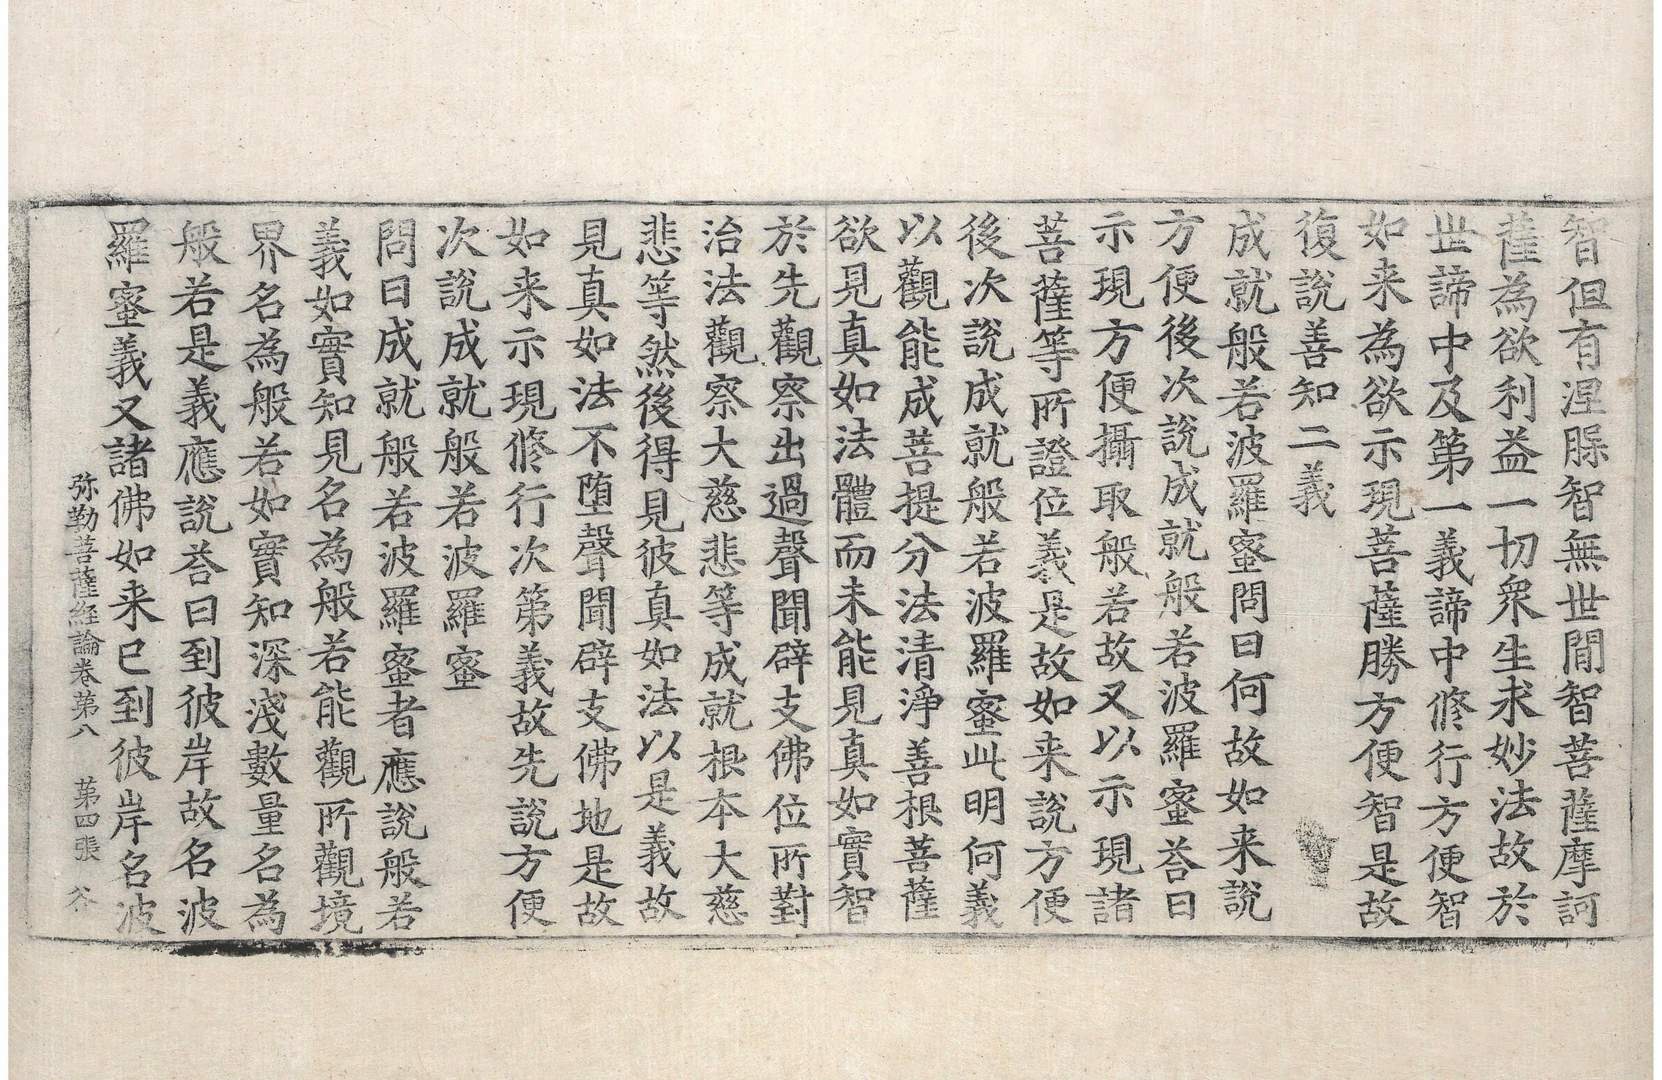 智但有涅脲智無世間智菩薩摩訶
薩為欲利益一切衆生求妙法故於
世諦中及第一義諦中修行方便智
如来為欲示現菩薩勝方便智是故
復說善知二義
成就般若波羅蜜問曰何故如来説
方便後次説成就般若波羅蜜荅曰
示現方便攝取般若故又以示現諸
菩薩等所證位義是故如来説方便
後次説成就般若波羅蜜此明何義
以觀能成菩提分法清淨善根菩薩
欲見真如法體而未能見真如實智
於先觀察出過聲聞辟支佛位所對
治法觀察大慈悲等成就根本大慈
悲等然後得見彼真如法以是義故
見真如法不堕聲聞辟支佛地是故
如来示現修行次第義故先説方便
次説成就般若波羅蜜
問曰成就般若波羅蜜者應説般若
義如實知見名為般若能觀所觀境
界名為般若如實知深淺數量名為
般若是義應説荅曰到彼岸故名波
羅蜜義又諸佛如来已到彼岸名波
弥勒菩薩經論卷第八 第四張 谷